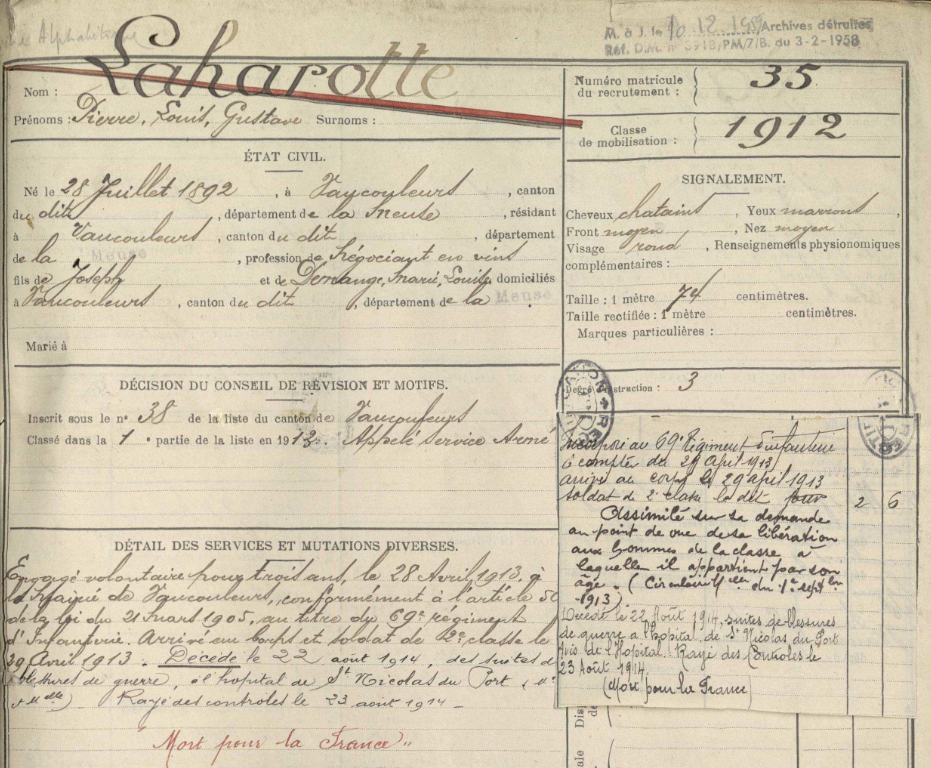 M. à J. le 10.12.195 Archives détruites
Réf. D.M. n° 5918/PM/7/B. du 3-2-1958
Nom : Laharotte
Prénoms : Pierre, Louis, Gustave Surnoms :
Numéro matricule du recrutement : 35
Classe de mobilisation : 1912
ÉTAT CIVIL.
Né le 28 Juillet 1892, à Vaucouleurs, canton
du dit, département de la Meuse, résidant
à Vaucouleurs, canton du dit, département
de la Meuse, profession de Négociant en vins
fils de Joseph et de Demange, Marie, Louise domiciliés
à Vaucouleurs, canton du dit, département de la Meuse
Marié à
SIGNALEMENT.
Cheveux chatains, Yeux marrons,
Front moyen, Nez moyen
Visage rond, Renseignements physionomiques
complémentaires :
Taille : 1 mètre 74 centimètres.
Taille rectifiée : 1 mètre centimètres.
Marques particulières :
DÉCISION DU CONSEIL DE RÉVISION ET MOTIFS.
Inscrit sous le n° 38 de la liste du canton de Vaucouleurs
Classé dans la 1e partie de la liste en 1913. Appelé Service Armé
Degré d'instruction : 3
Incorporé au 69e Régiment d'infanterie
à compter du 29 April 1913
arrivé au corps le 29 april 1913
soldat de 2e classe le dit jour 2 6
Assimilé sur sa demande
au point de vue de sa libération
aux hommes de la classe à
laquelle il appartient par son
âge. (Circulaire du 1er septbre
1913)
Décédé le 22 Août 1914, suites de blessures
de guerre à l'hopital de St Nicolas du Port
Avis de l'Hopital. Rayé des Controles le
23 Août 1914.
(Mort pour la France)
DÉTAIL DES SERVICES ET MUTATIONS DIVERSES.
Engagé volontaire pour trois ans, le 28 Avril 1913, à
la Mairie de Vaucouleurs, conformément à l'article 50
de la loi du 21 mars 1905, au titre du 69e régiment
d'Infanterie. Arrivé au corps et soldat de 2e classe le
29 Avril 1913. Décédé le 22 aout 1914, des suites de
blessures de guerre, à l'hopital de St Nicolas du Port (Mthe
et Mlle) Rayé des controles le 23 aout 1914 -
"Mort pour la France"